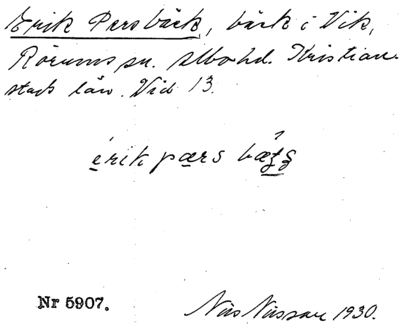 Erik Persbäck, bäck i Vik,
Rörums sn. Albo hd. Kristian-
stads län. Vid 13.
érik pærs
Nr 5907.
Nils Nilsson 1930.